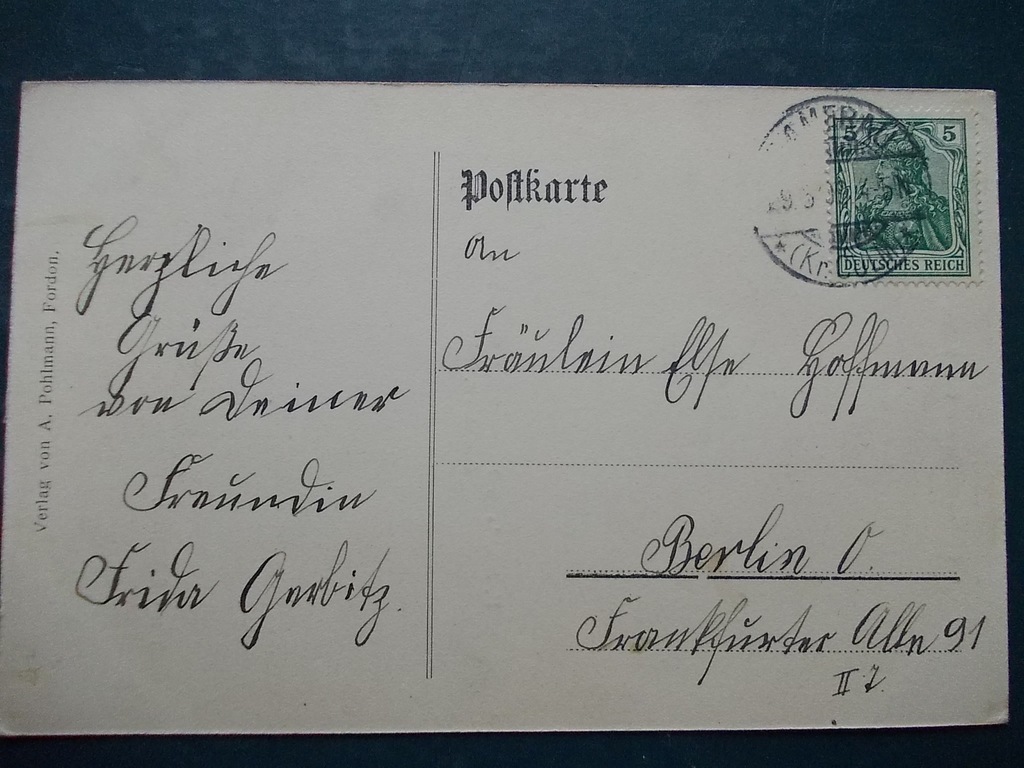 Verlag von A. Pohlmann, Fordon.
Herzliche
Grüße
von Deiner
Freundin
Frida Gerbitz.
Postkarte
An
Fräulein Else Hoffmann
Berlin O.
Frankfurter Alle 91
II
5 5
DEUTSCHES REICH
(Kr.